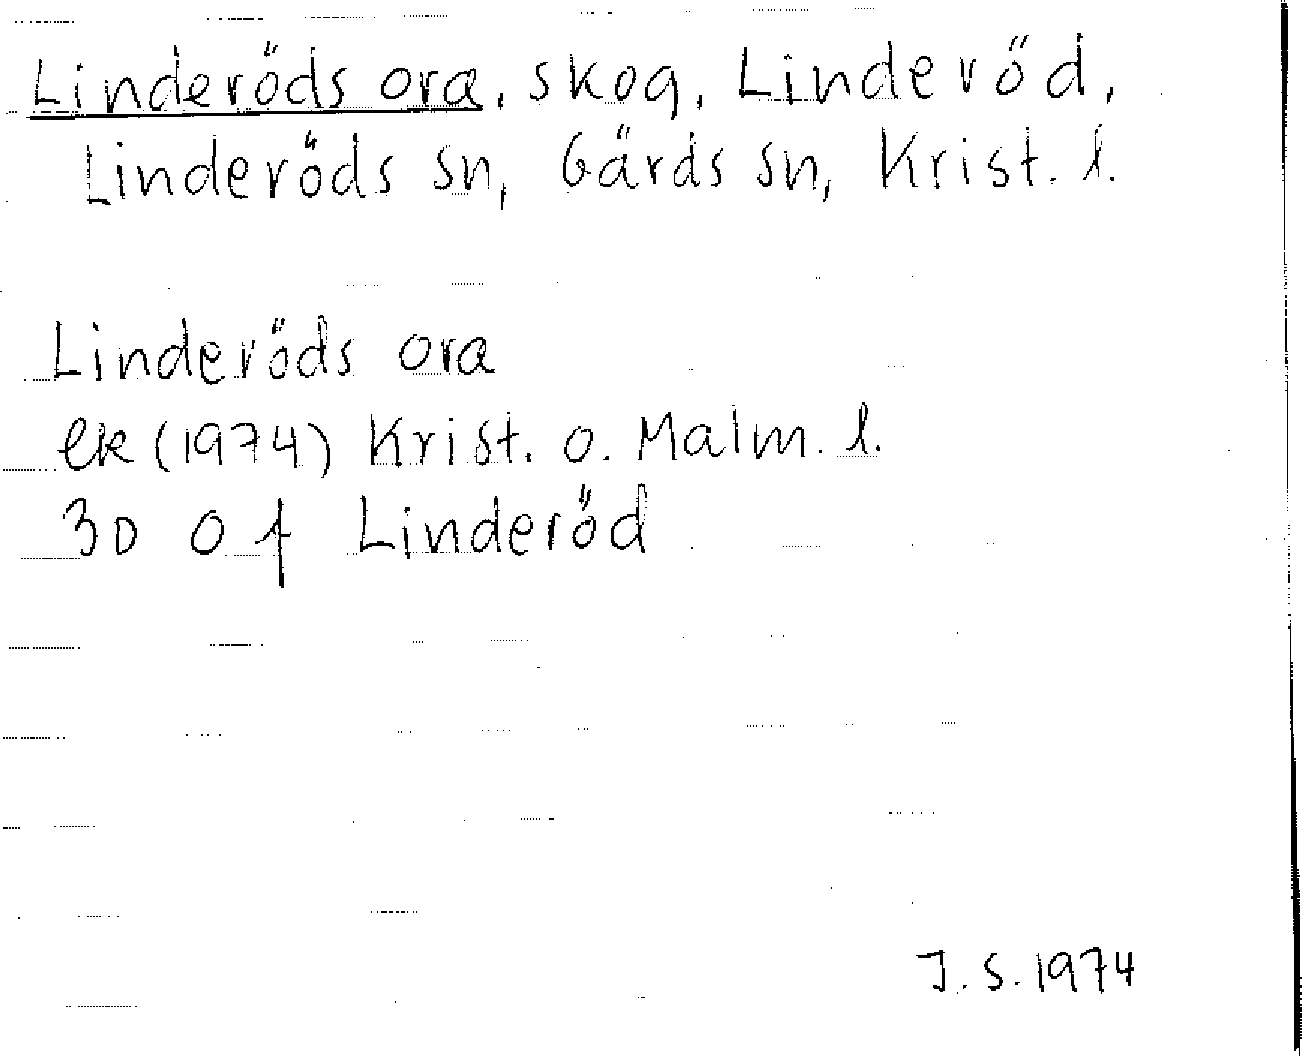 Linderöds ora, skog, Linderöd,
Linderöds sn, Gärds sn, Krist. l.
Linderöds ora
ek (1974) Krist. o. Malm. l.
3D 0 f Linderöd
J.S. 1974